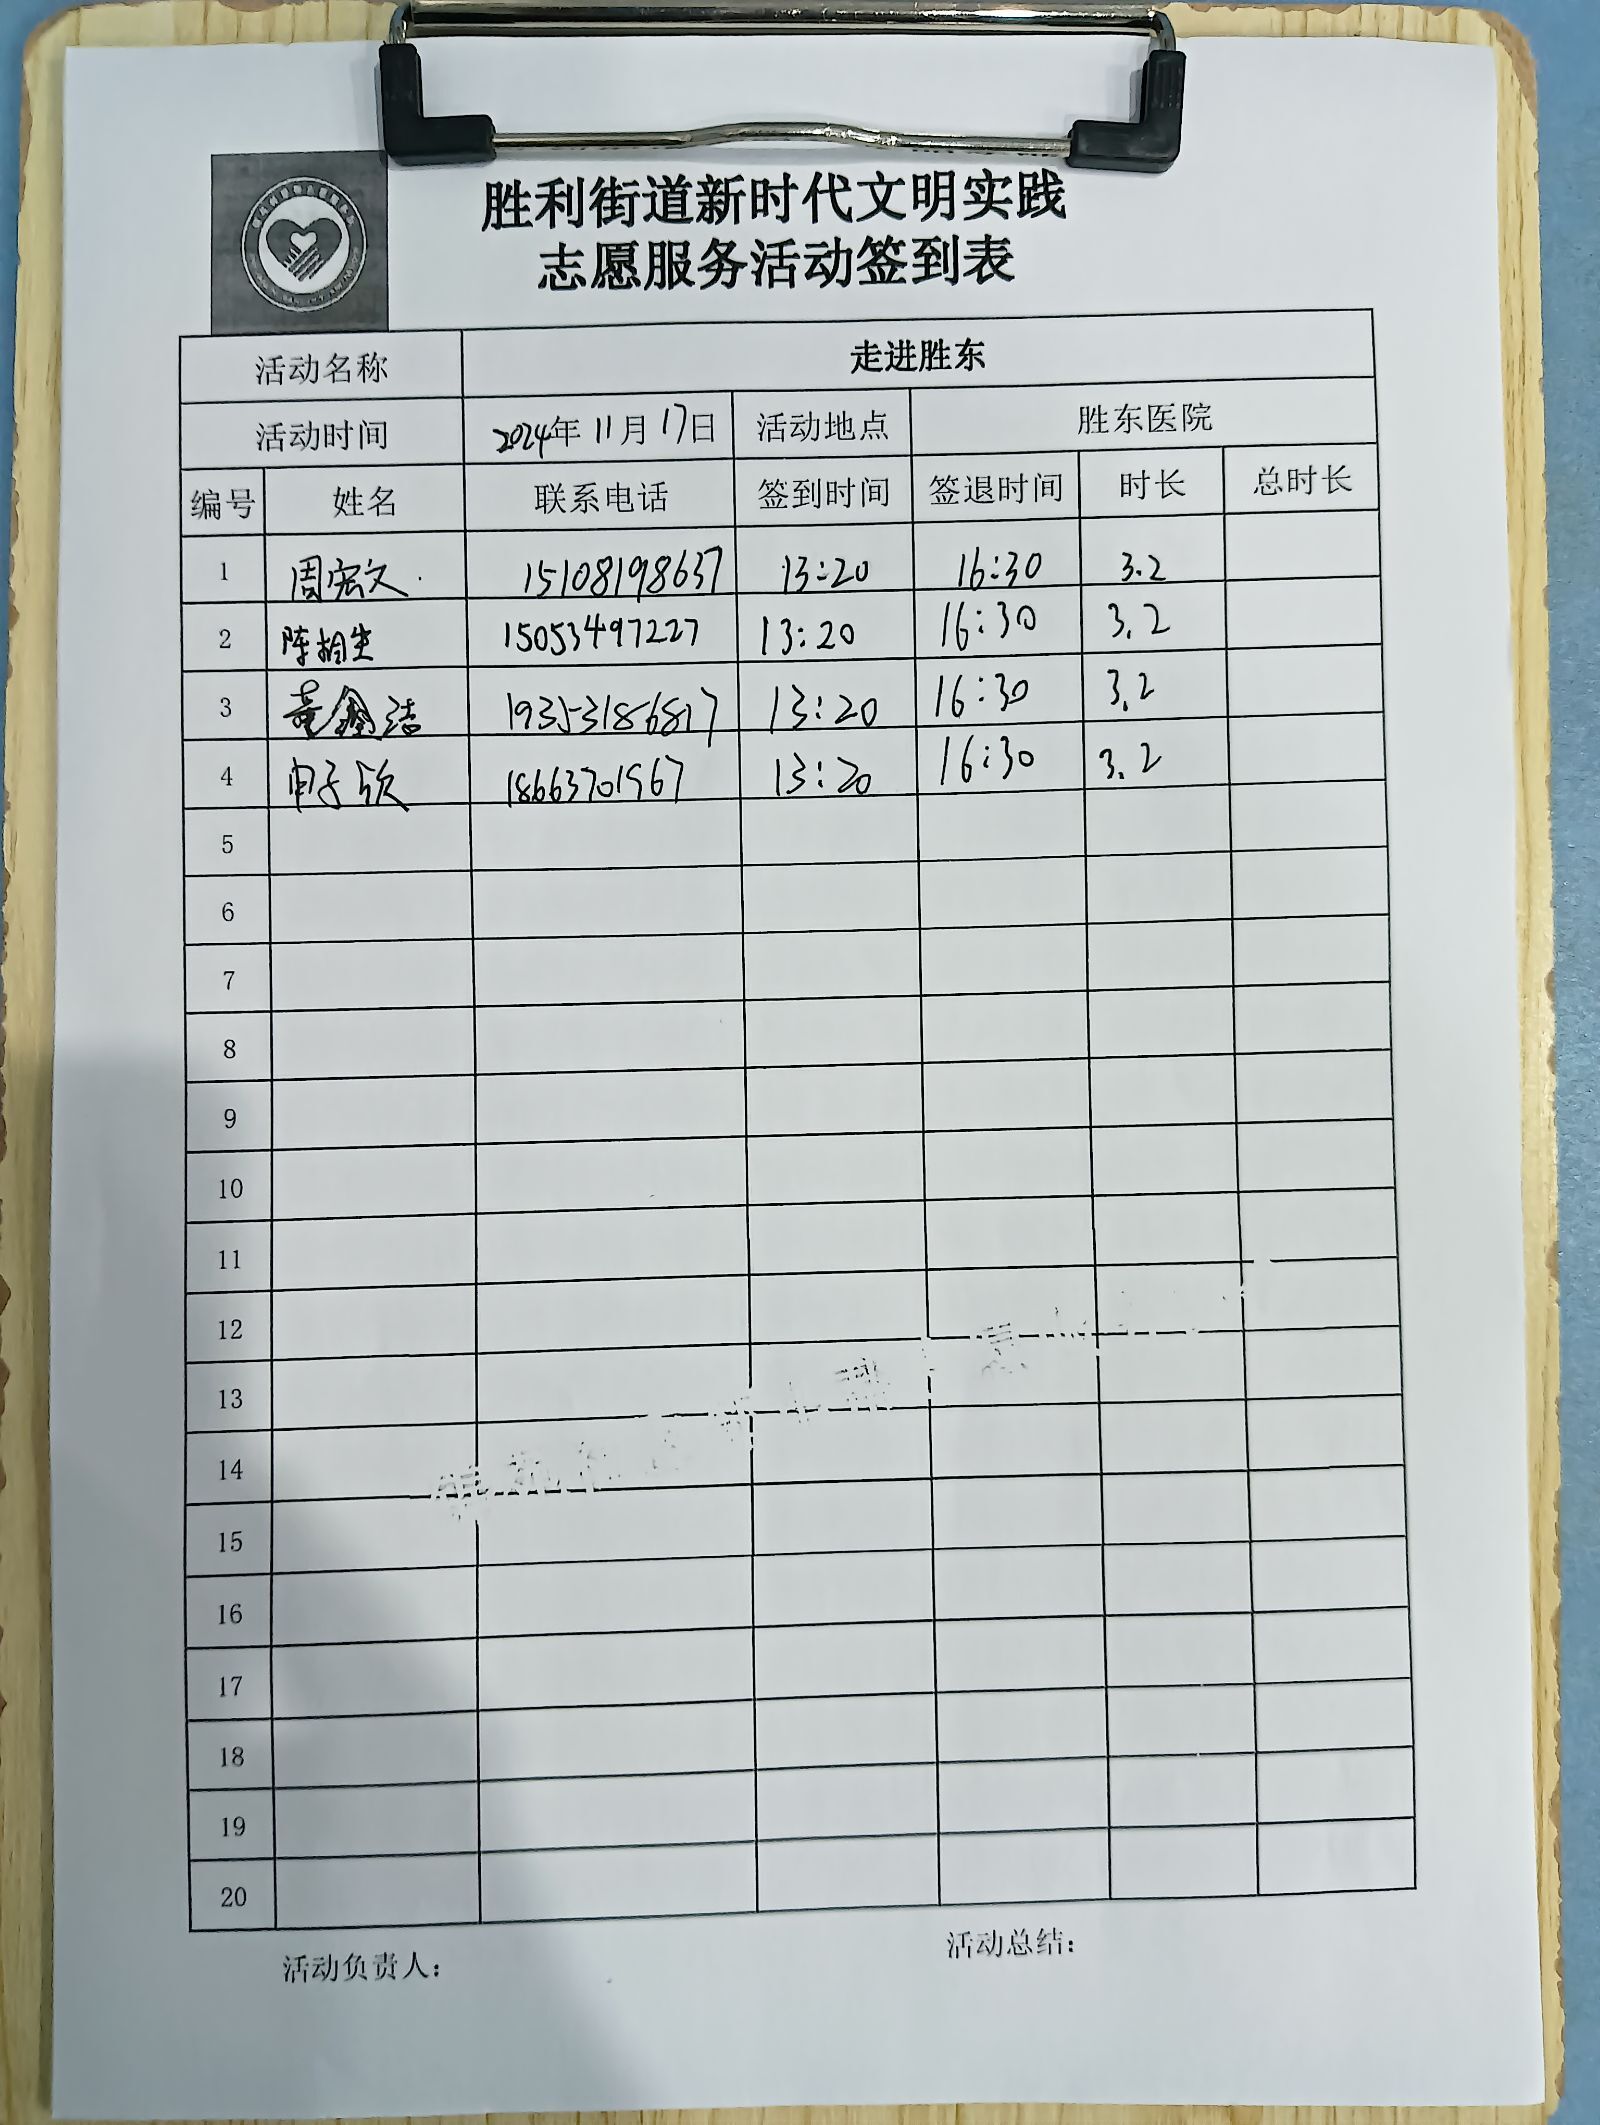 胜利街道新时代文明实践
志愿服务活动签到表
活动名称 走进胜东
活动时间 2024年11月17日 活动地点 胜东医院
编号 姓名 联系电话 签到时间 签退时间 时长 总时长
1 周宏文 15108198637 13:20 16:30 3.2
2 陈相生 15053497227 13:20 16:30 3.2
3 董鑫洁 19353186817 13:20 16:30 3.2
4 申子欣 18663701967 13:20 16:30 3.2
5
6
7
8
9
10
11
12
13
14
15
16
17
18
19
20
活动负责人： 活动总结：